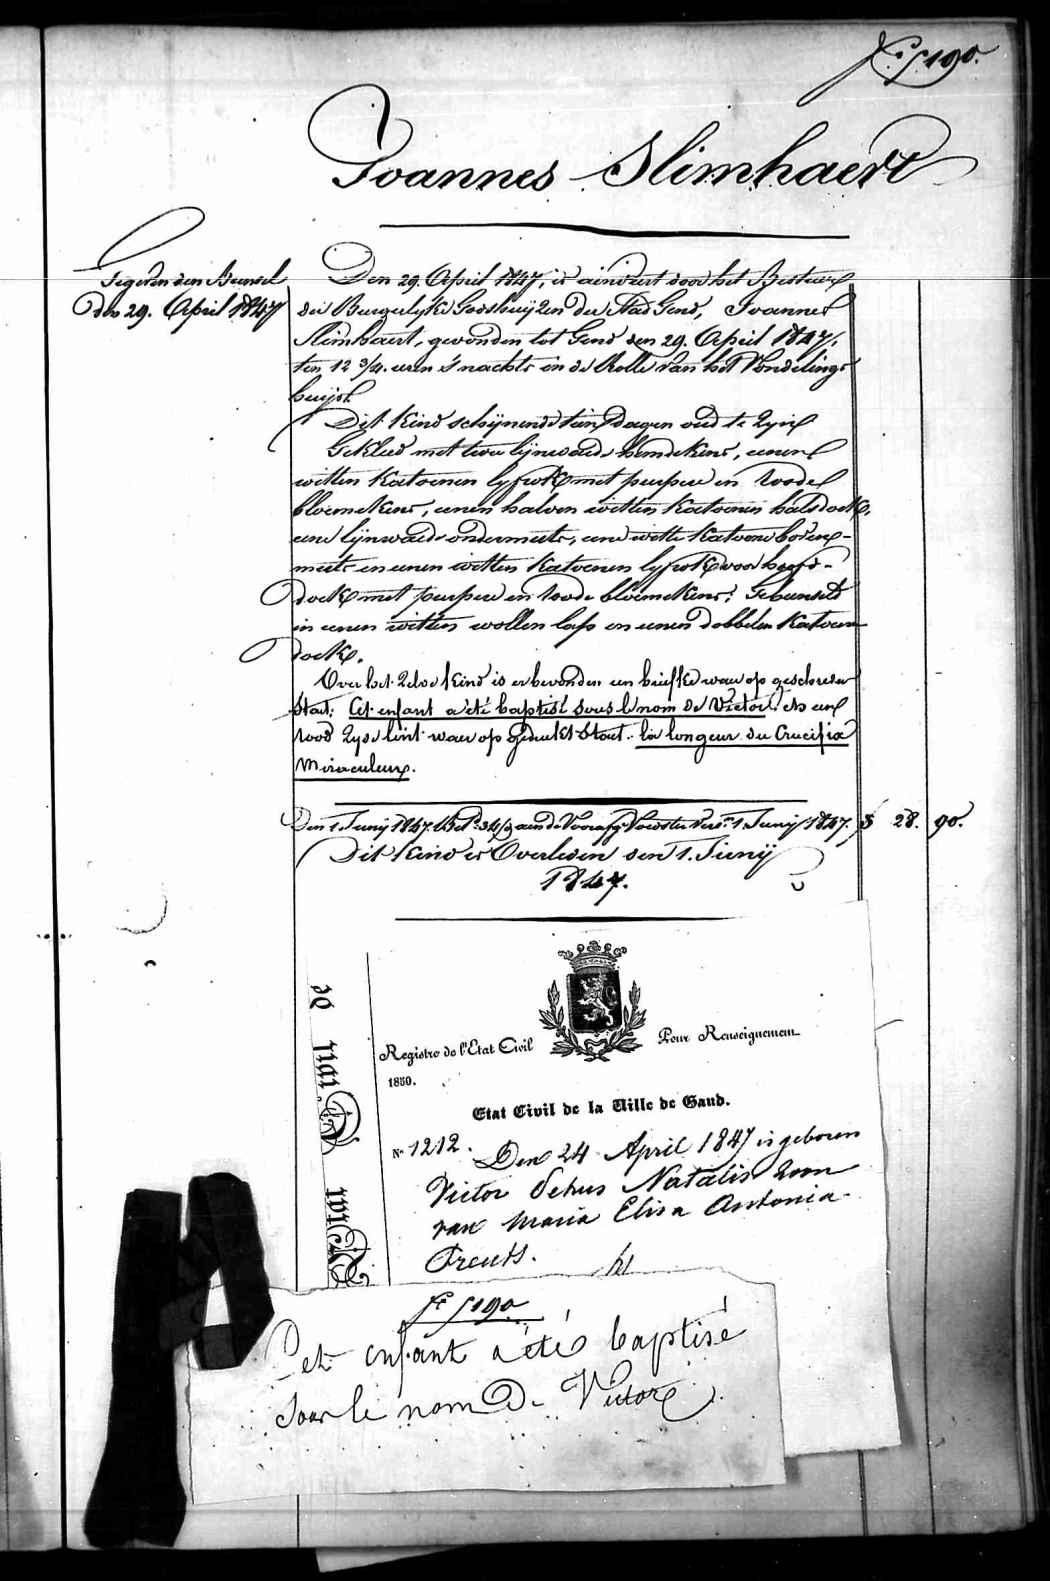 Joannes Slimhaert
Gegeven den Bunsel
den 29. April 1847
Den 29. April 1847, is ainvert door het Bestuur
der Burgerlyke Godshuyzen der Stad Gend, Joannes
Slimhaert, gevonden tot Gend den 29. April 1847,
ten 12 3/4. uren s'nachts in de Rolle van het Vondelings
huijs.
Dit Kind schijnende tien dagen oud te zyn
Gekleed met twee lijnwaede hemdekens, eenen
witten katoenen lyfrok met purpere en roode
bloemekens, eenen halven witten katoenen halsdoek,
eene lijnwaede ondermuts, eene witte katoene boven-
muts en eenen witten katoenen lyfrok voor hoofd-
doek met purpere en roode bloemekens; Gebunseld
in eenen witten wollen lap en eenen dobbelen katoenen
doek.
Over het zelve kind is er bevonden een briefke waer op geschreven
staet: Cet enfant a été baptisé sous le nom de Victor, en een
rood zyde lint waer op gedrukt staet: la longeur du Crucifix
Miraculeux.
Den 1. Junij 1847. Bet. 34/3 aen de Voorafg. Voedster vers. 1. Junij 1847. 5 28. 90.
Dit Kind is Overleden den 1. Junij
1847.
Registre de l'Etat Civil
Pour Renseignemem
1850.
Etat Civil de la Ville de Gand.
No 1212. Den 24 April 1847 is geboren
Victor Petrus Natalis zoon
van Maria Elisa Antonia
5190
Cet enfant a été baptisé
Sous le nom De Victor.